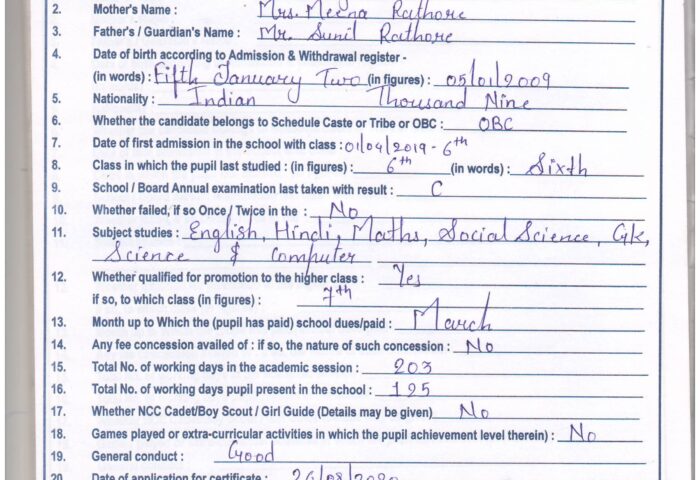 2. Mother's Name : Mrs. Meena Rathore
3. Father's / Guardian's Name : Mr. Sunil Rathore
4. Date of birth according to Admission & Withdrawal register -
(in words) : Fifth January Two (in figures) : 05/01/2009
5. Nationality : Indian Thousand Nine
6. Whether the candidate belongs to Schedule Caste or Tribe or OBC : OBC
7. Date of first admission in the school with class : 01/04/2019 - 6th
8. Class in which the pupil last studied : (in figures) : 6th (in words) : Sixth
9. School / Board Annual examination last taken with result : C
10. Whether failed, if so Once / Twice in the : No
11. Subject studies : English, Hindi, Maths, Social Science, GK,
Science & Computer
12. Whether qualified for promotion to the higher class : Yes
if so, to which class (in figures) : 7th
13. Month up to Which the (pupil has paid) school dues/paid : March
14. Any fee concession availed of : if so, the nature of such concession : No
15. Total No. of working days in the academic session : 203
16. Total No. of working days pupil present in the school : 195
17. Whether NCC Cadet/Boy Scout / Girl Guide (Details may be given) No
18. Games played or extra-curricular activities in which the pupil achievement level therein) : No
19. General conduct : Good
20. Date of application for certificate : 26/08/2020